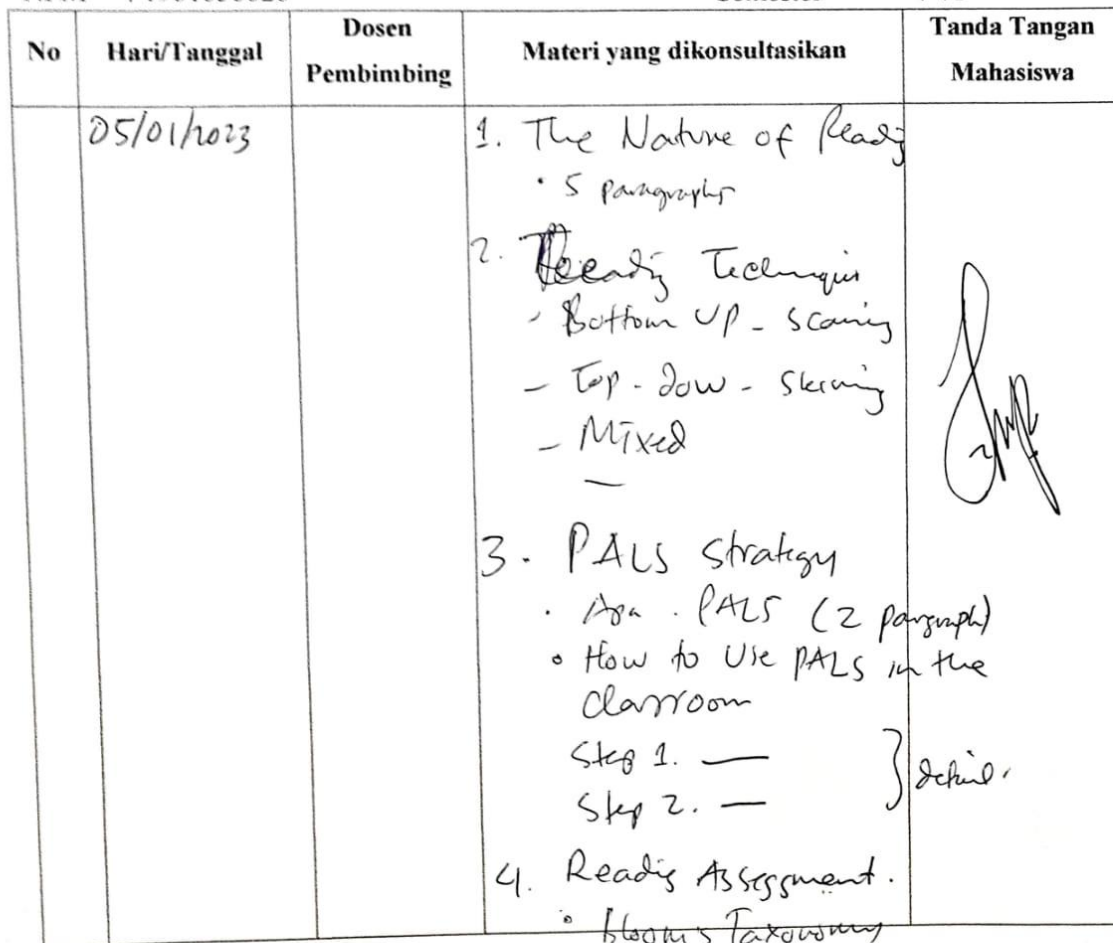 No
Hari/Tanggal
Dosen
Pembimbing
Materi yang dikonsultasikan
Tanda Tangan
Mahasiswa
05/01/2023
1. The Nature of Readig
• 5 paragraphs
2. Readig Techniques
- Bottom UP - Scaning
- Top - dow - Skiming
- Mixed
—
3. PALS Strategy
• Apa PALS (2 paragraph)
• How to Use PALS in the
classroom
Step 1. —
Step 2. —
} detail.
4. Readig Assessment.
• Bloom's Taxonomy